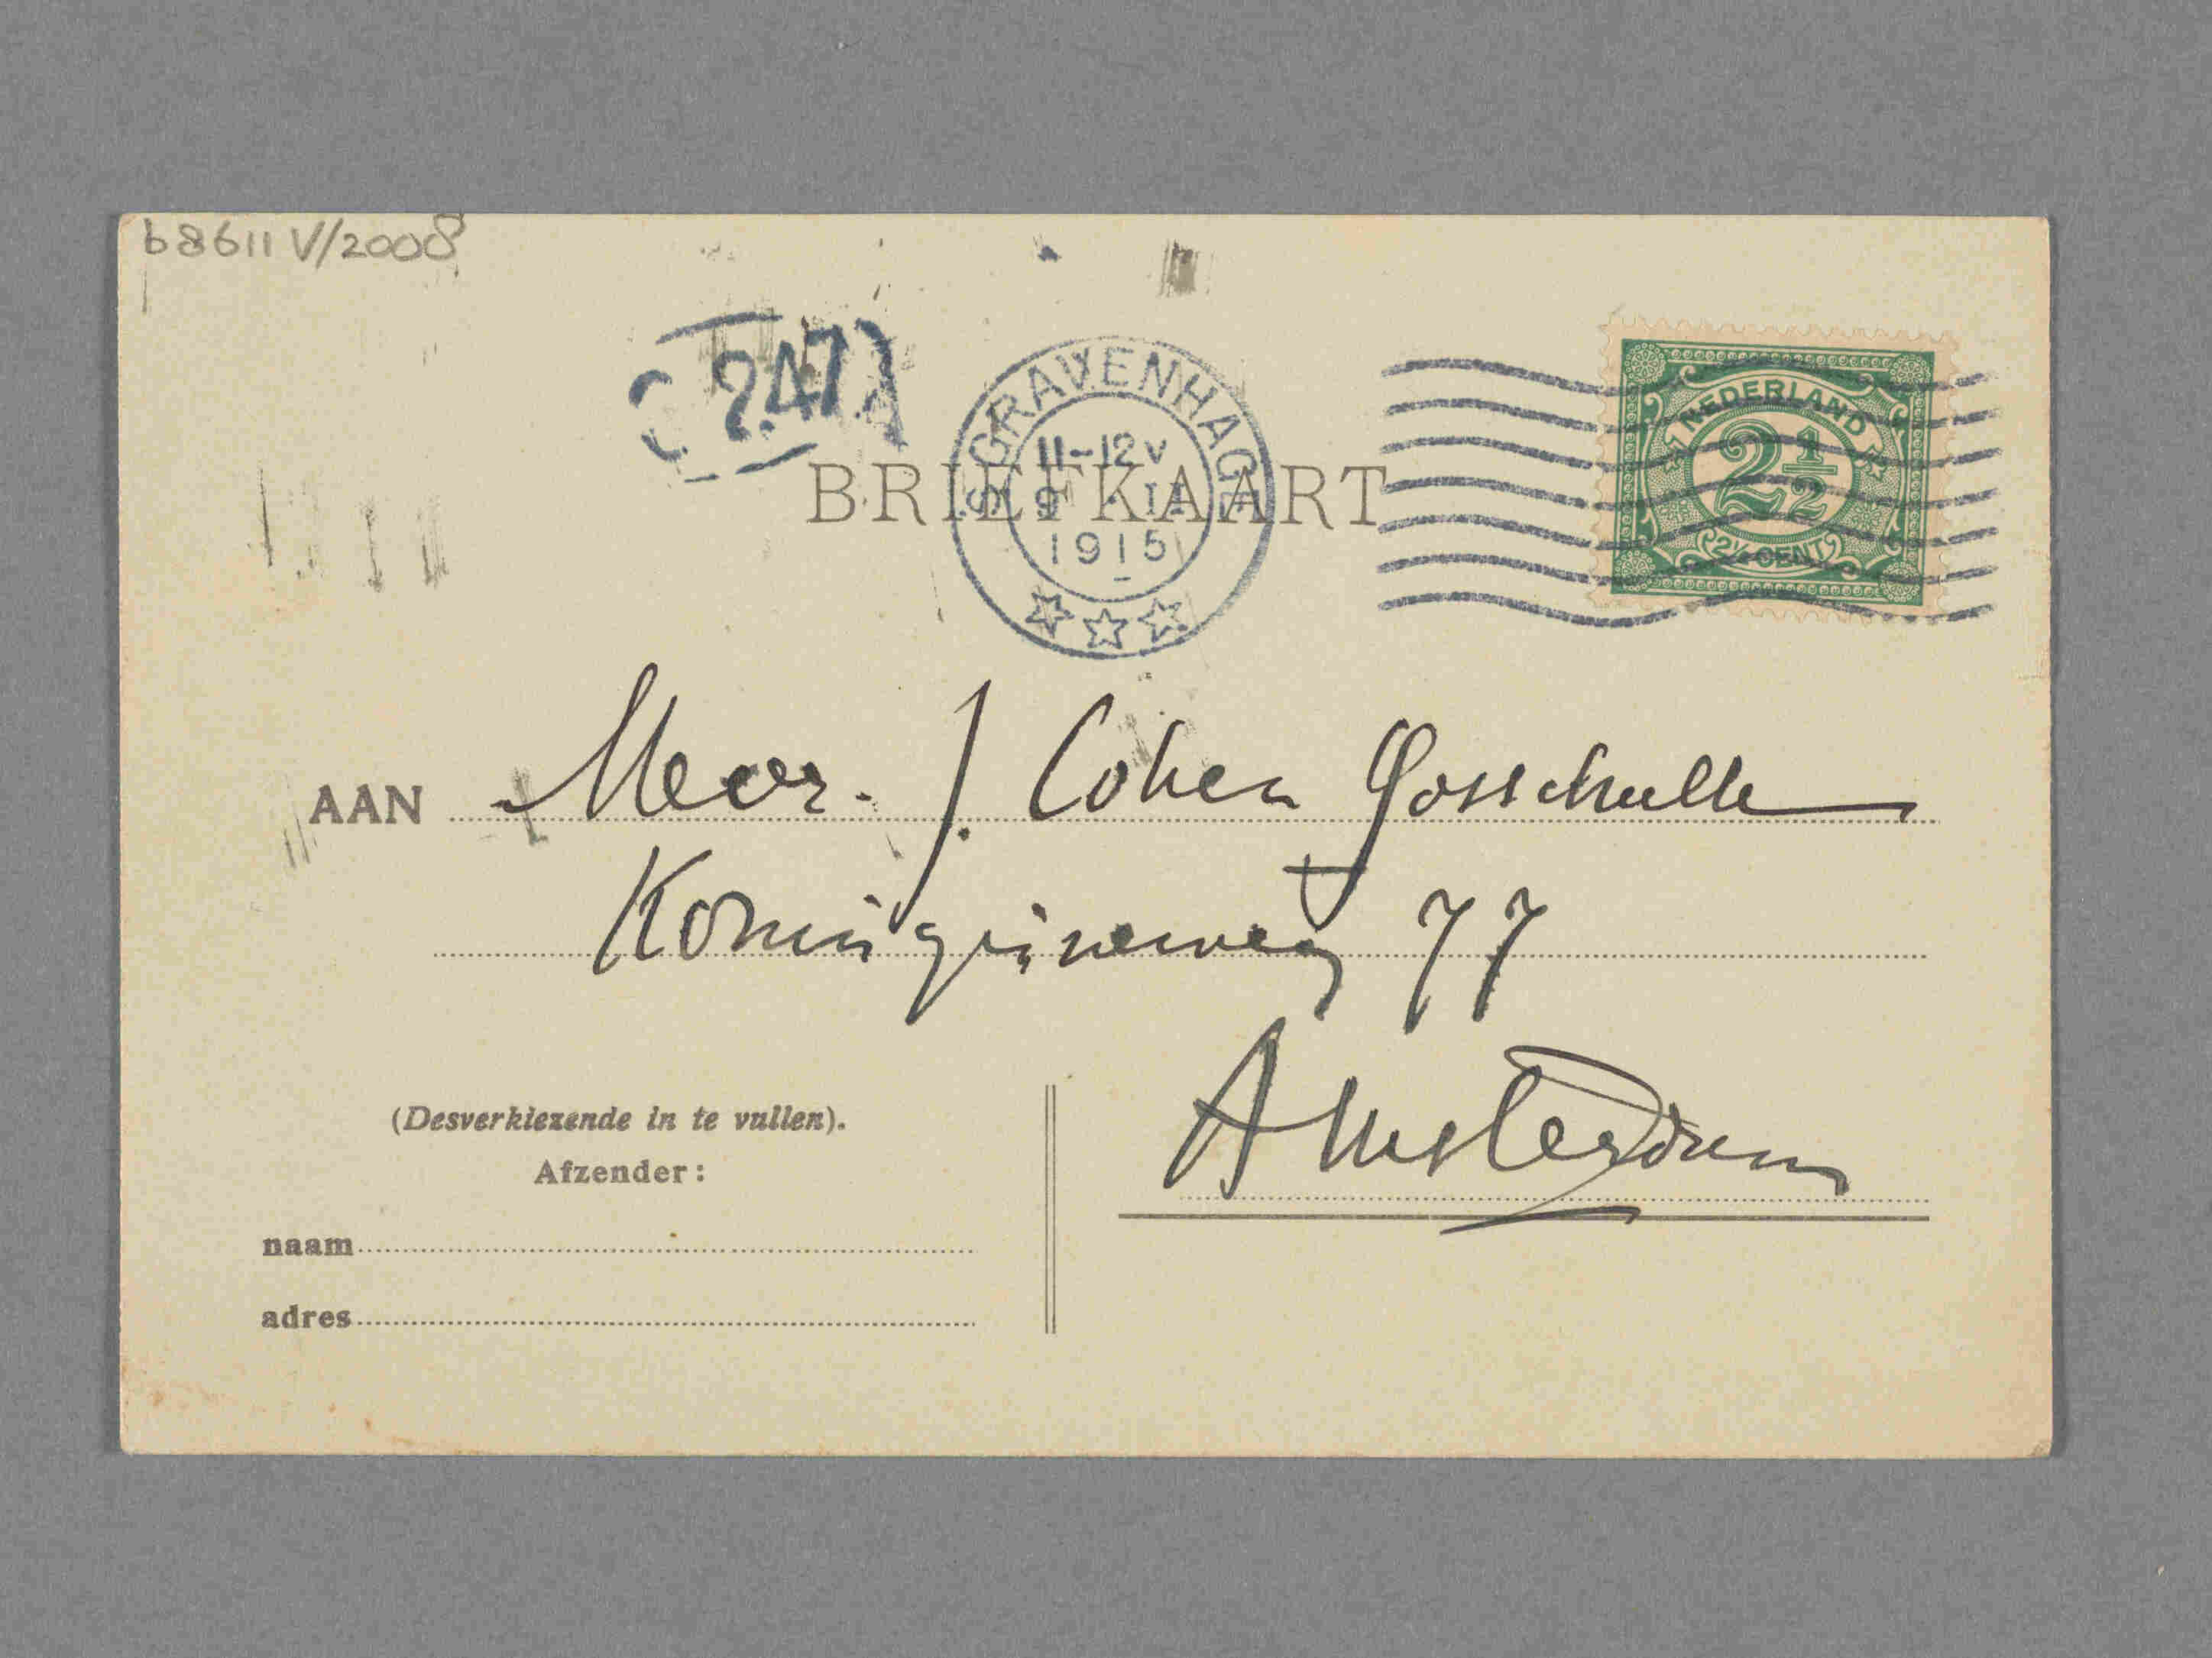 b8611 V/2008
247
'S GRAVENHAGE
11-12 V
9
1915
NEDERLAND
2½
2½ CENT
BRIEFKAART
AAN Meer. J. Cohen Gosschalk
Koninginneweg 77
Amsterdam
(Desverkiezende in te vullen).
Afzender:
naam
adres